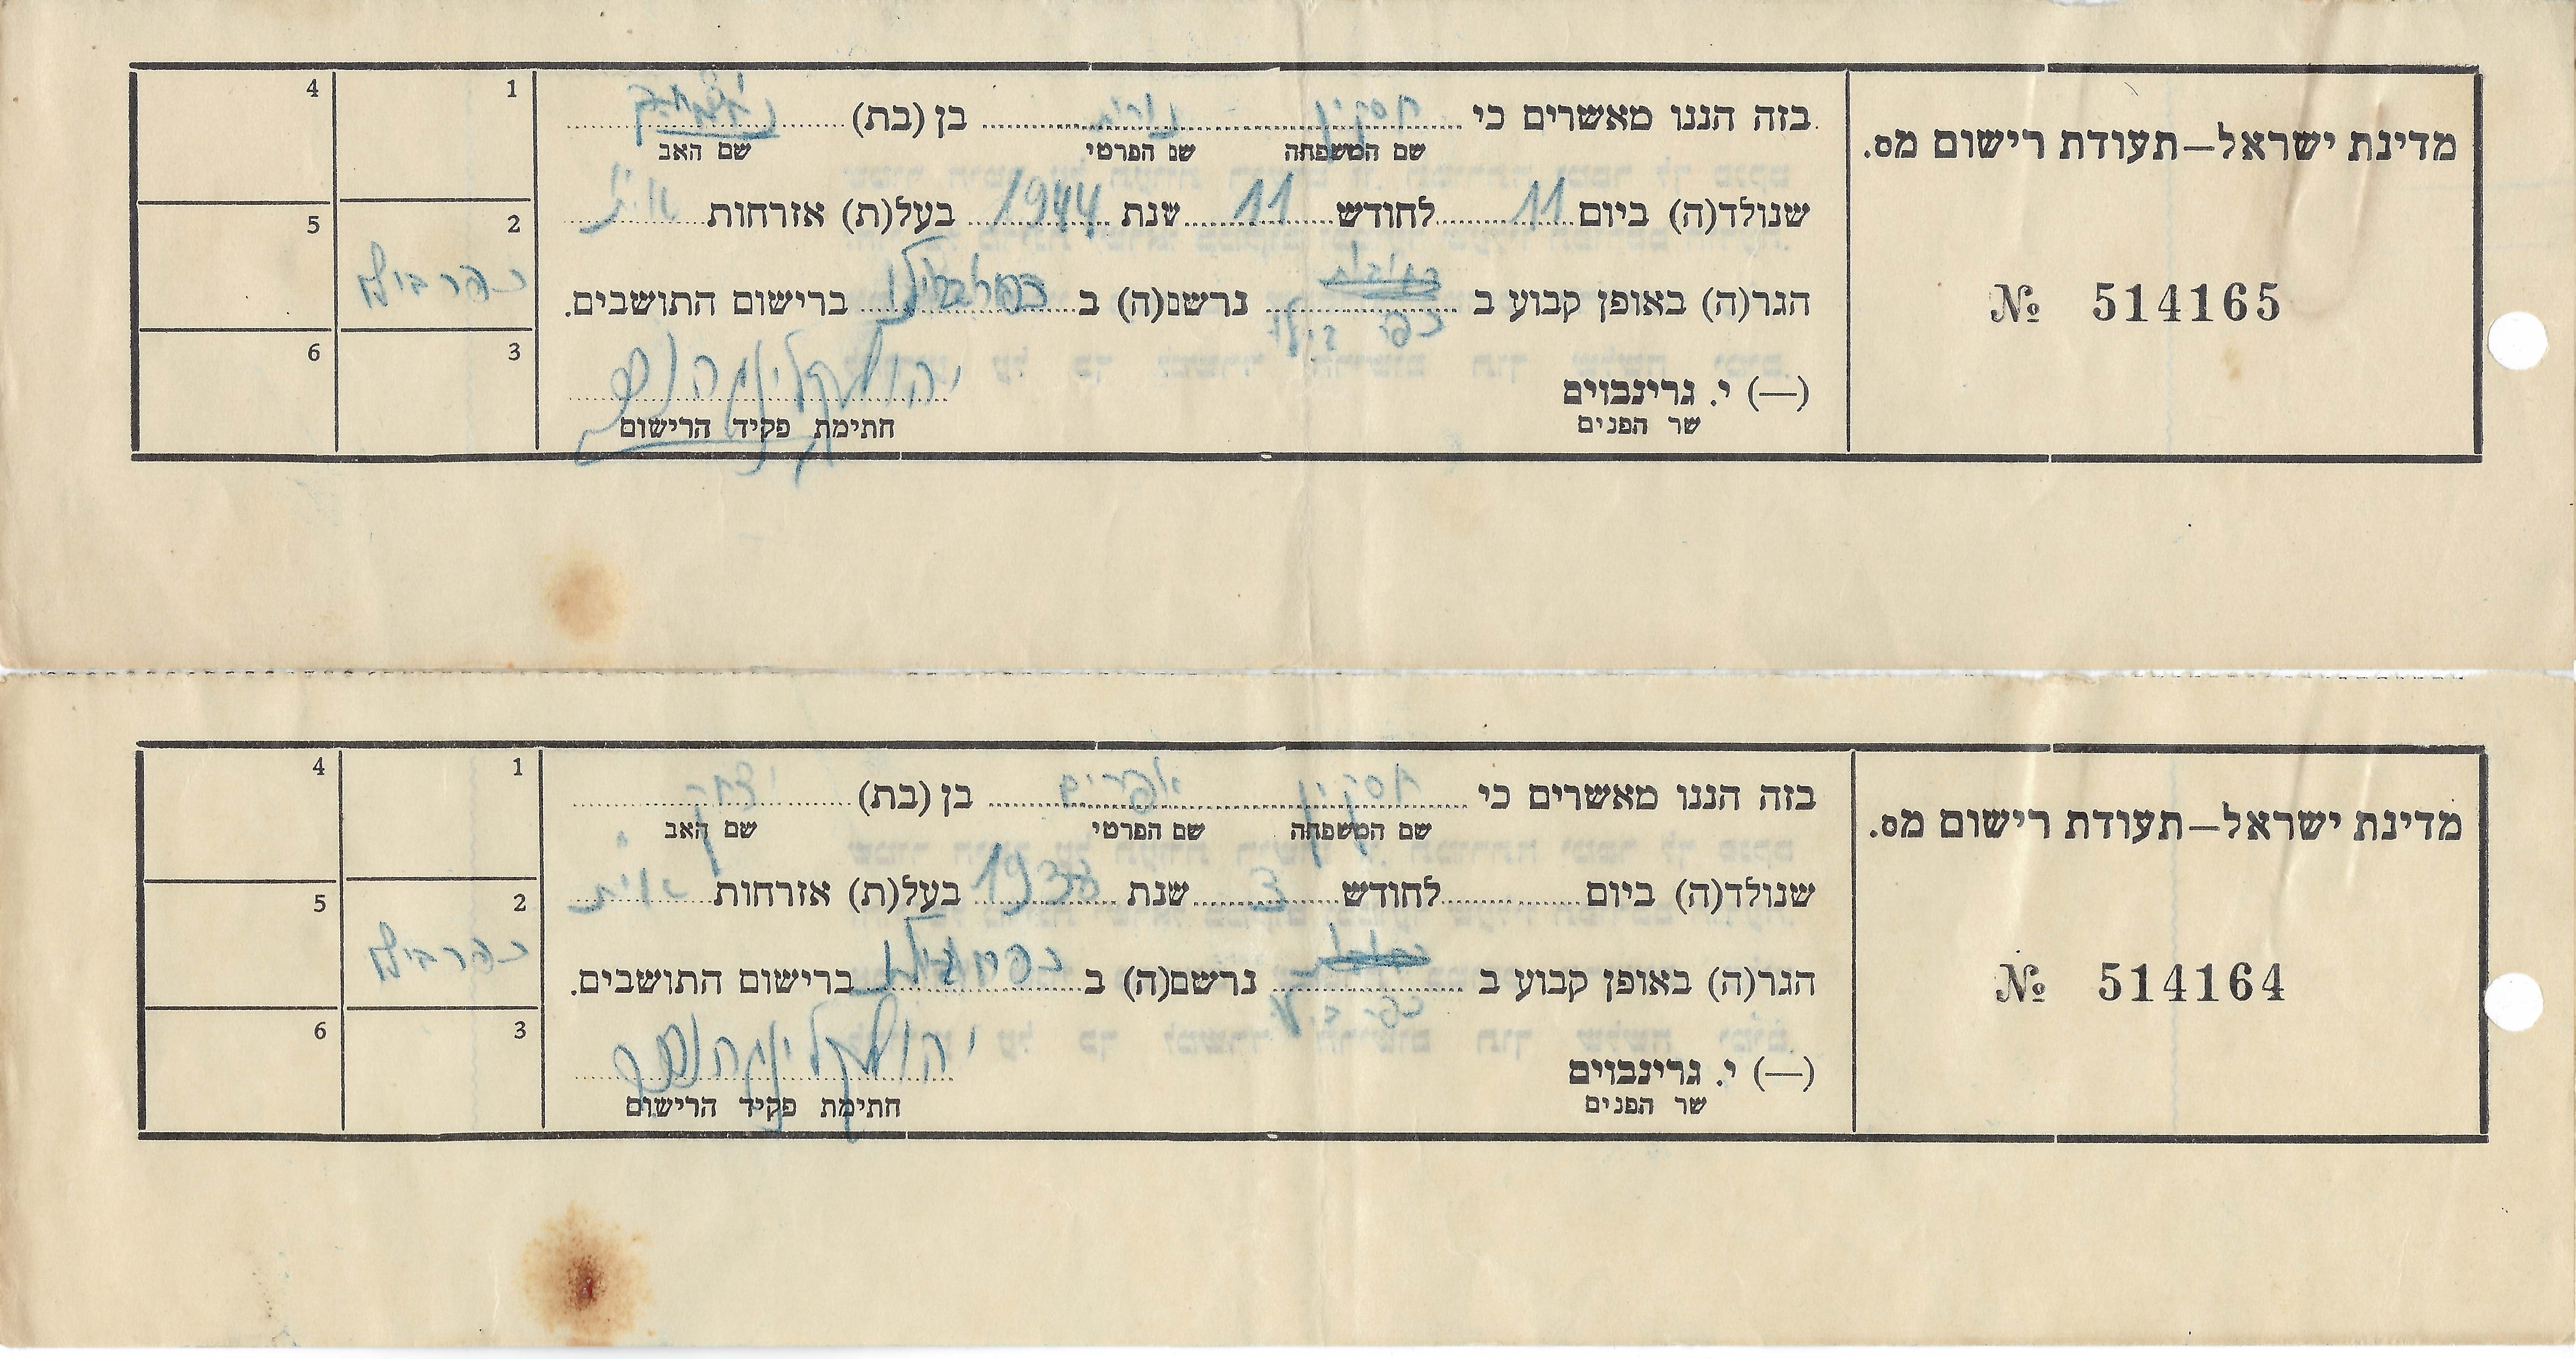 מדינת ישראל–תעודת רישום מס.
№ 514165
בזה הננו מאשרים כי חסקין בן (בת)
שם המשפחה שם הפרטי שם האב
שנולד(ה) ביום 11 לחודש 11 שנת 1944 בעל(ת) אזרחות
הגר(ה) באופן קבוע ב כפר בילו נרשם(ה) ב כפר בילו ברישום התושבים.
(—) י. גרינבוים
שר הפנים חתימת פקיד הרישום
1 4
2 5
כפר בילו
3 6
מדינת ישראל–תעודת רישום מס.
№ 514164
בזה הננו מאשרים כי חסקין אפרים בן (בת) יצחק
שם המשפחה שם הפרטי שם האב
שנולד(ה) ביום לחודש 3 שנת בעל(ת) אזרחות
הגר(ה) באופן קבוע ב כפר בילו נרשם(ה) ב כפר בילו ברישום התושבים.
(—) י. גרינבוים
שר הפנים חתימת פקיד הרישום
1 4
2 5
כפר בילו
3 6